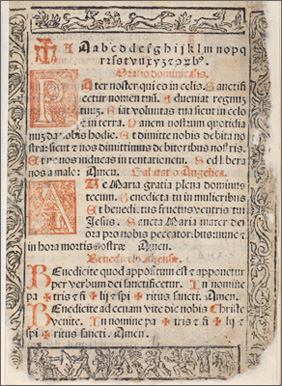 A a b c d d e f g h i j k l m n o p q
r r s ſ t v u x y z
Oratio dominicalis.
PAter noster qui es in celis. Sanctifi
cetur nomen tuũ. Adueniat regnuz
tuuz. Fiat voluntas tua sicut in celo
et in terra. Panem nostrum quotidia
nuz da nobis hodie. Et dimitte nobis debita no
stra: sicut et nos dimittimus debitoribus nostris.
Et ne nos inducas in tentationem. Sed libera
nos a malo: Amen. Salutatio Angelica.
AVe Maria gratia plena dominus
tecum. Benedicta tu in mulieribus
Et benedictus fructus ventris tui
Jesus. Sancta Maria mater dei
ora pro nobis peccatoribus: nunc et
in hora mortis nostræ Amen.
Benedictio mense.
BEnedicite quod appositum est et apponetur
per verbum dei sanctificetur. In nomine
pa ✠ tris et fi ✠ lij et spi ✠ ritus sancti. Amen.
BEnedicite ad cenam vite dic nobis Christe
venite. In nomine pa ✠ tris et fi ✠ lij et
spi ✠ ritus sancti. Amen.